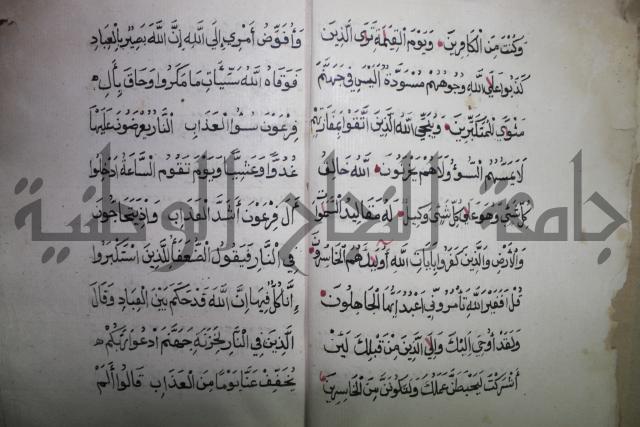 وكنت من الكافرين ويوم القيمة ترى الذين
كذبوا على الله وجوههم مسودة اليس في جهنم
مثوى للمتكبرين وينجي الله الذين اتقوا بمفازتهم
لا يمسهم السوء ولا هم يحزنون الله خالق
كل شئ وهو على كل شئ وكيل له مقاليد السموات
والارض والذين كفروا بايات الله اولئك هم الخاسرون
قل افغير الله تأمروني اعبد ايها الجاهلون
ولقد أوحي اليك والى الذين من قبلك لئن
أشركت ليحبطن عملك ولتكونن من الخاسرين
وأفوض أمري إلى الله إن الله بصير بالعباد
فوقاه الله سيئات ما مكروا وحاق بأل
فرعون سوء العذاب النار يعرضون عليها
غدوا وعشيا ويوم تقوم الساعة ادخلوا
أل فرعون أشد العذاب وإذ يتحاجون
في النار فيقول الضعفاء للذين استكبروا
إنا كل فيها إن الله قد حكم بين العباد وقال
الذين في النار لخزنة جهنم ادعوا ربكم
يخفف عنا يوما من العذاب قالوا ألم
جامعة النجاح الوطنية